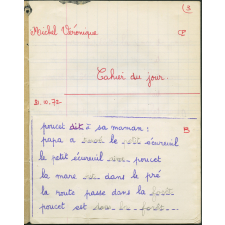 (3
Michel Véronique CP
Cahier du jour.
poucet dit à sa maman : B
papa a le petit écureuil
le petit écureuil poucet
la mare est dans le pré
la route passe dans la forêt
poucet est dans la forêt